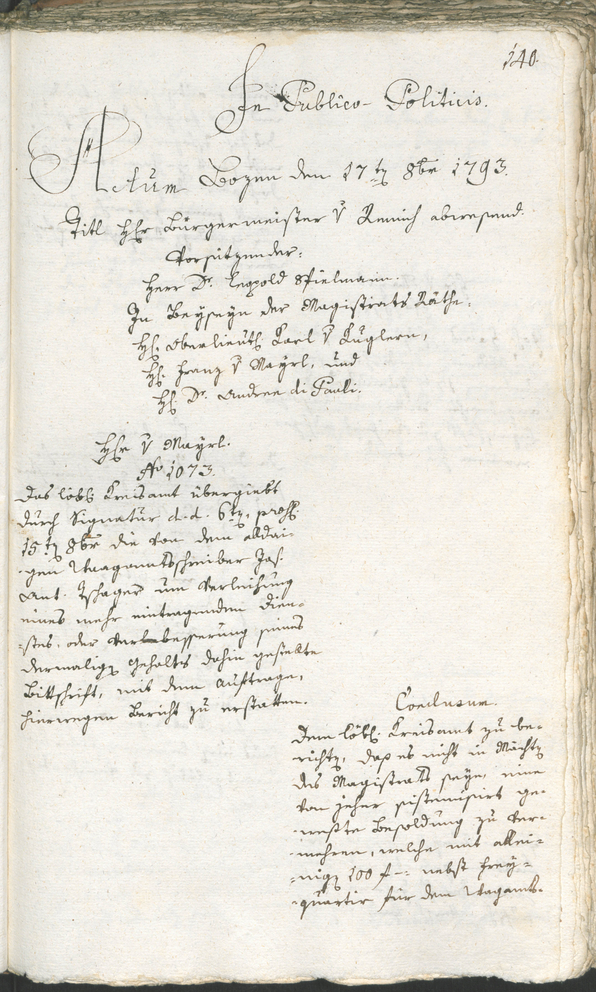 140.
In Publico-Politicis.
Actum Bozen den 17ten 8br 1793.
Titl Hr Bürgermeister v abwesend.
Vorsitzender:
Herr Dr. Leopold Spielmann.
In Beyseyn der Magistrats Räthe.
H. Oberlieut. Karl v Kuglern,
H. Franz v Mayrl, und
H. Dr. Andree di Pauli.
Hr v Mayrl.
No 1073.
Das löbl. Kreisamt übergiebt
durch Signatur d. d. 6ten, pros.
15ten 8br die von dem alldai-
gen Waagamtschreiber Jos.
Ant. um Verleihung
eines mehr eintragenden Dien-
stes, oder Verbesserung seines
dermaligen Gehalts dahin gestellte
Bittschrift, mit dem Auftrage,
hierwegen Bericht zu erstatten.
Conclusum.
Dem löbl. Kreisamt zu be-
richten, daß es nicht in Mächten
des Magistrats seye, eine
von jeher sistemisirt ge-
weste Besoldung zu ver-
mehren, welche mit allei-
nigen 100 f -: nebst frey-
quartir für den Waagamts-